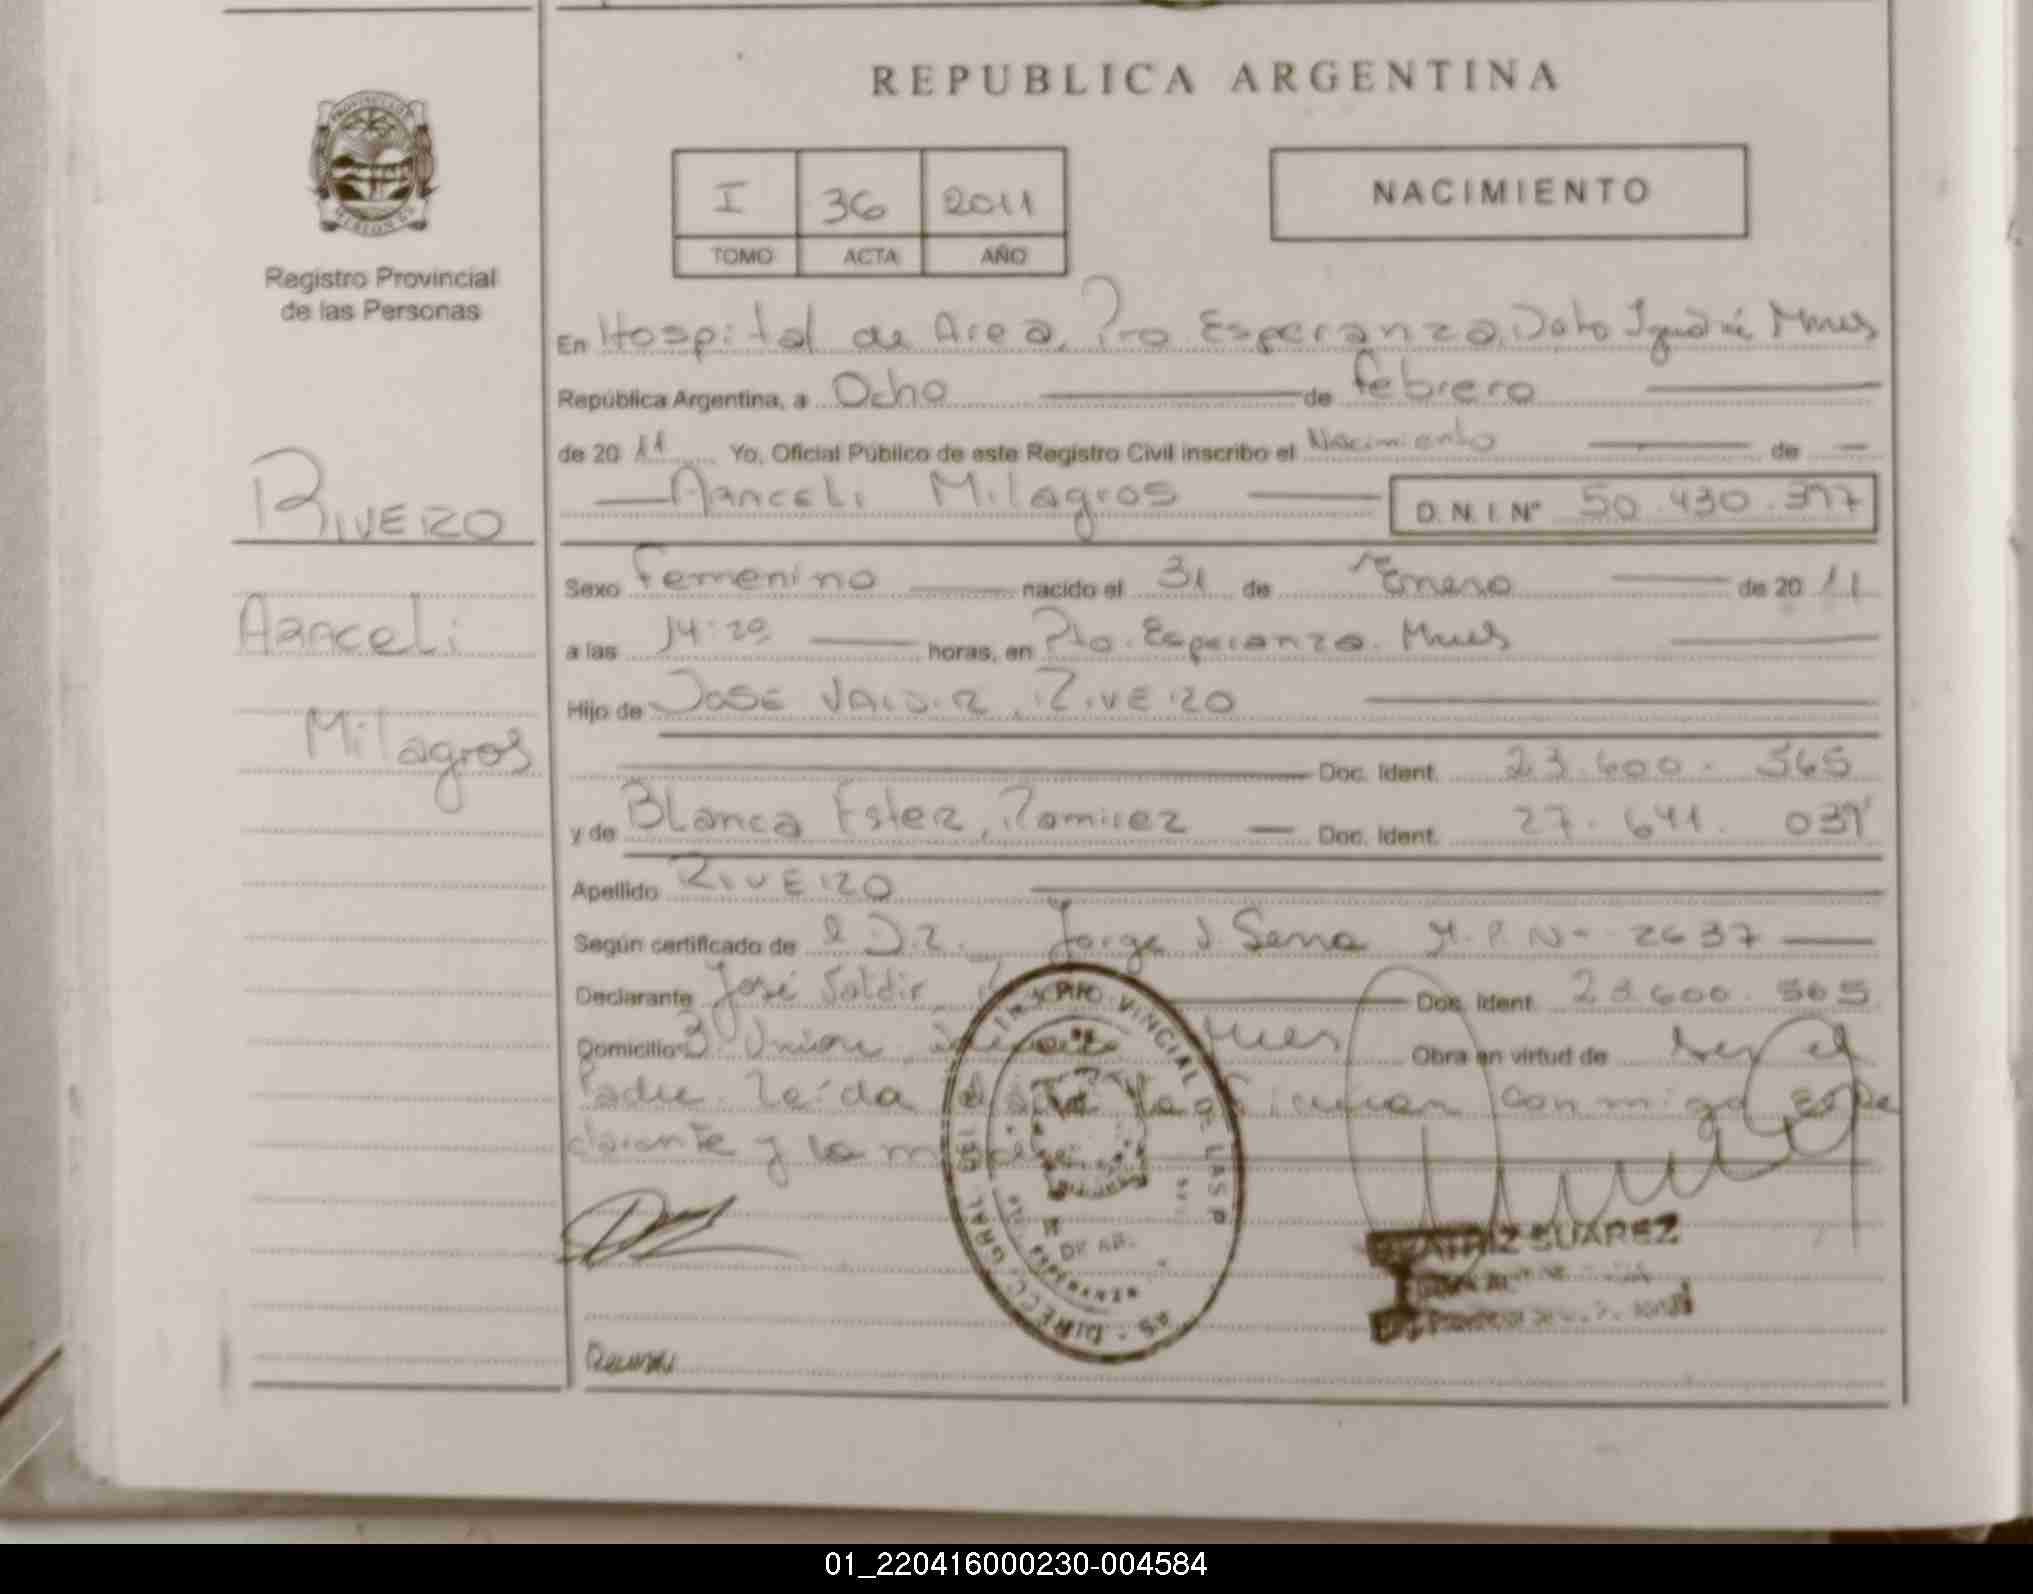 REPUBLICA ARGENTINA
I 36 2011
TOMO ACTA AÑO
NACIMIENTO
Registro Provincial
de las Personas
RIVERO
Milagros
En Hospital de Area, Pto Esperanza, Dpto Iguazú Mnes
República Argentina, a Ocho de febrero
de 20 11 Yo, Oficial Público de este Registro Civil inscribo el Nacimiento de
Milagros D.N.I. Nº 50.430.397
Sexo Femenino nacido el 31 de Enero de 20 11
a las horas, en Pto. Esperanza. Mnes
Hijo de JOSE RIVERO
Doc. Ident. 23.600. 565
y de Blanca Ester, Ramirez Doc. Ident. 27. 641.
Apellido RIVERO
Según certificado de Jorge J. M.P.Nº 2637
Declarante José Doc. Ident. 23.600.565
Domicilio Unión, Mnes Obra en virtud de ser el
Padre. Leída conmigo
clarante y la
BEATRIZ SUAREZ
01_220416000230-004584